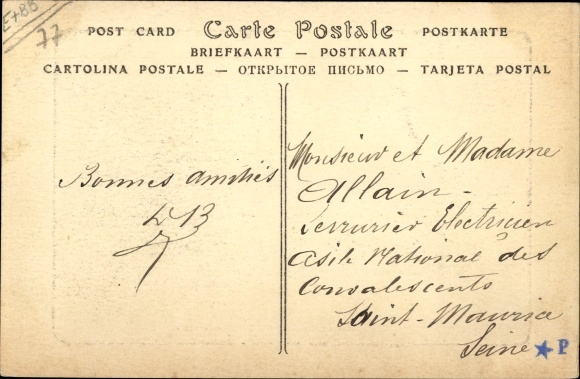 E+88
77
POST CARD Carte Postale POSTKARTE
BRIEFKAART — POSTKAART
CARTOLINA POSTALE — ОТКРЫТОЕ ПИСЬМО — TARJETA POSTAL
Bonnes amitiés
Monsieur et Madame
Allain -
Serrurier Electricien
Asile National des
Convalescents
Saint-Maurice
Seine
P